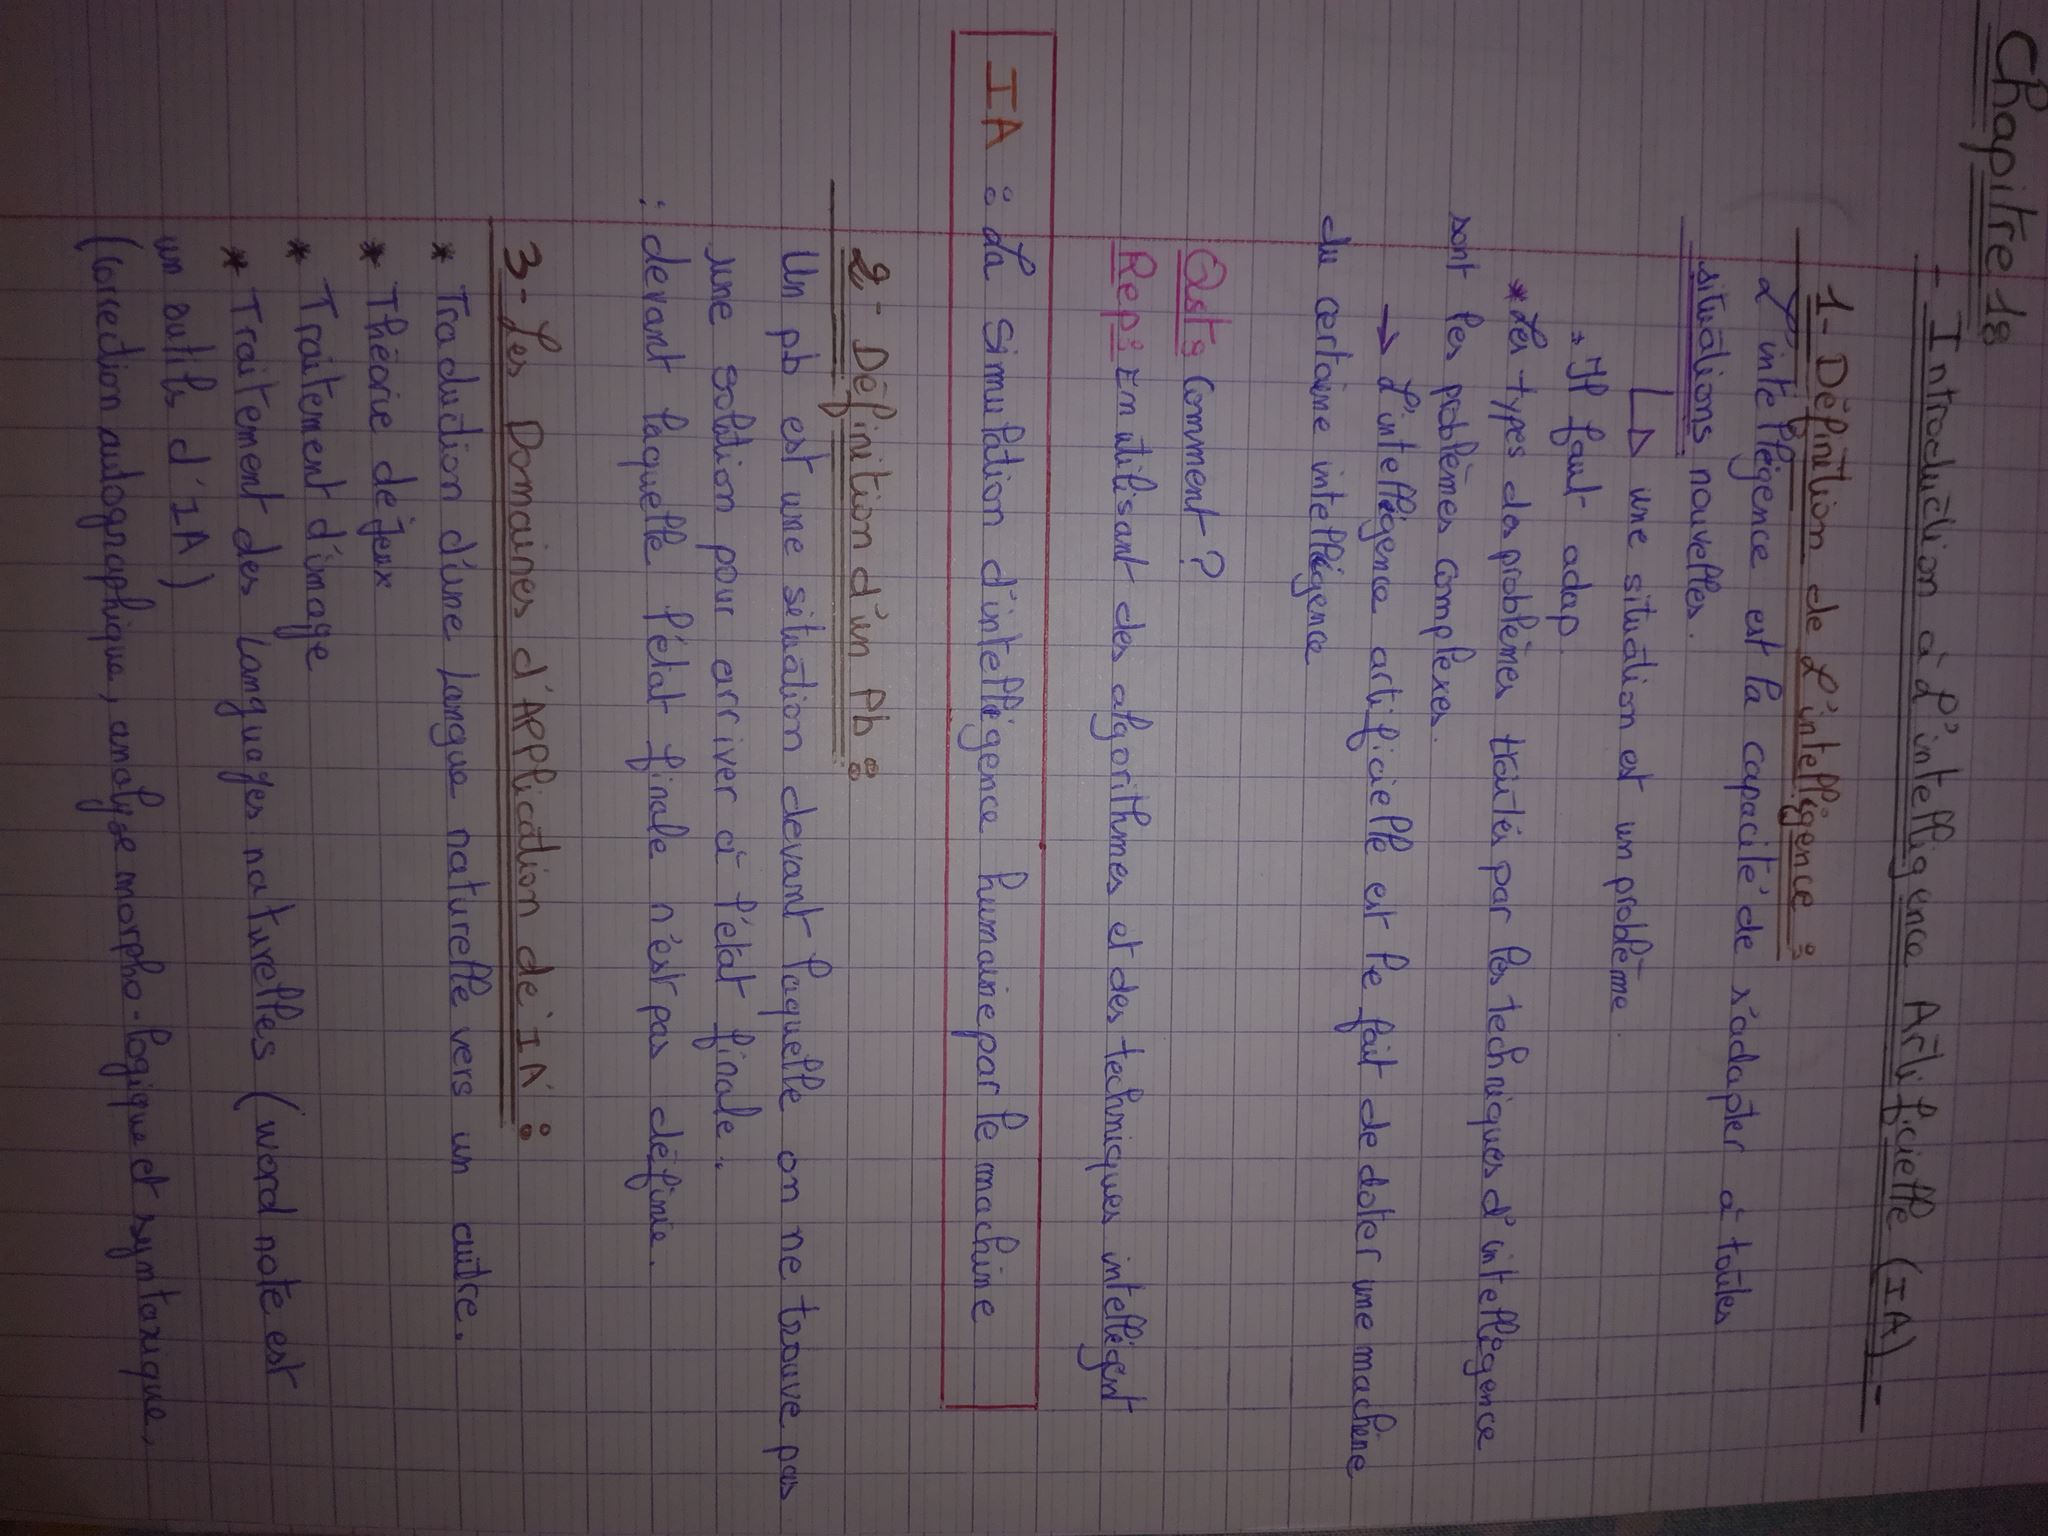 Chapitre 18
- Introduction à L'intelligence Artificielle (IA) -
1- Définition de L'intelligence :
L'intellegence est la capacité de s'adapter à toutes
situations nouvelles.
une situation est un problème.
* Il faut adap
* Les types des problèmes traités par les techniques d'intellegence
sont les problèmes complexes.
→ L'intelligence artificielle est le fait de doter une machine
du certaine intelligence
Qst: Comment ?
Rep: En utilisant des algorithmes et des techniques intellegent
IA : La simulation d'intelligence humaine par le machine
2- Définition d'un Pb :
Un pb est une situation devant laquelle on ne trouve pas
une solution pour arriver à l'état finale.
: devant laquelle l'état finale n'est pas définie.
3- Les Domaines d'Application de IA :
* Traduction d'une Langue naturelle vers un autre.
* Théorie de jeux
* Traitement d'image
* Traitement des Languages naturelles (word note est
un outils d'IA)
(correction autographique, analyse morpho-logique et syntaxique.